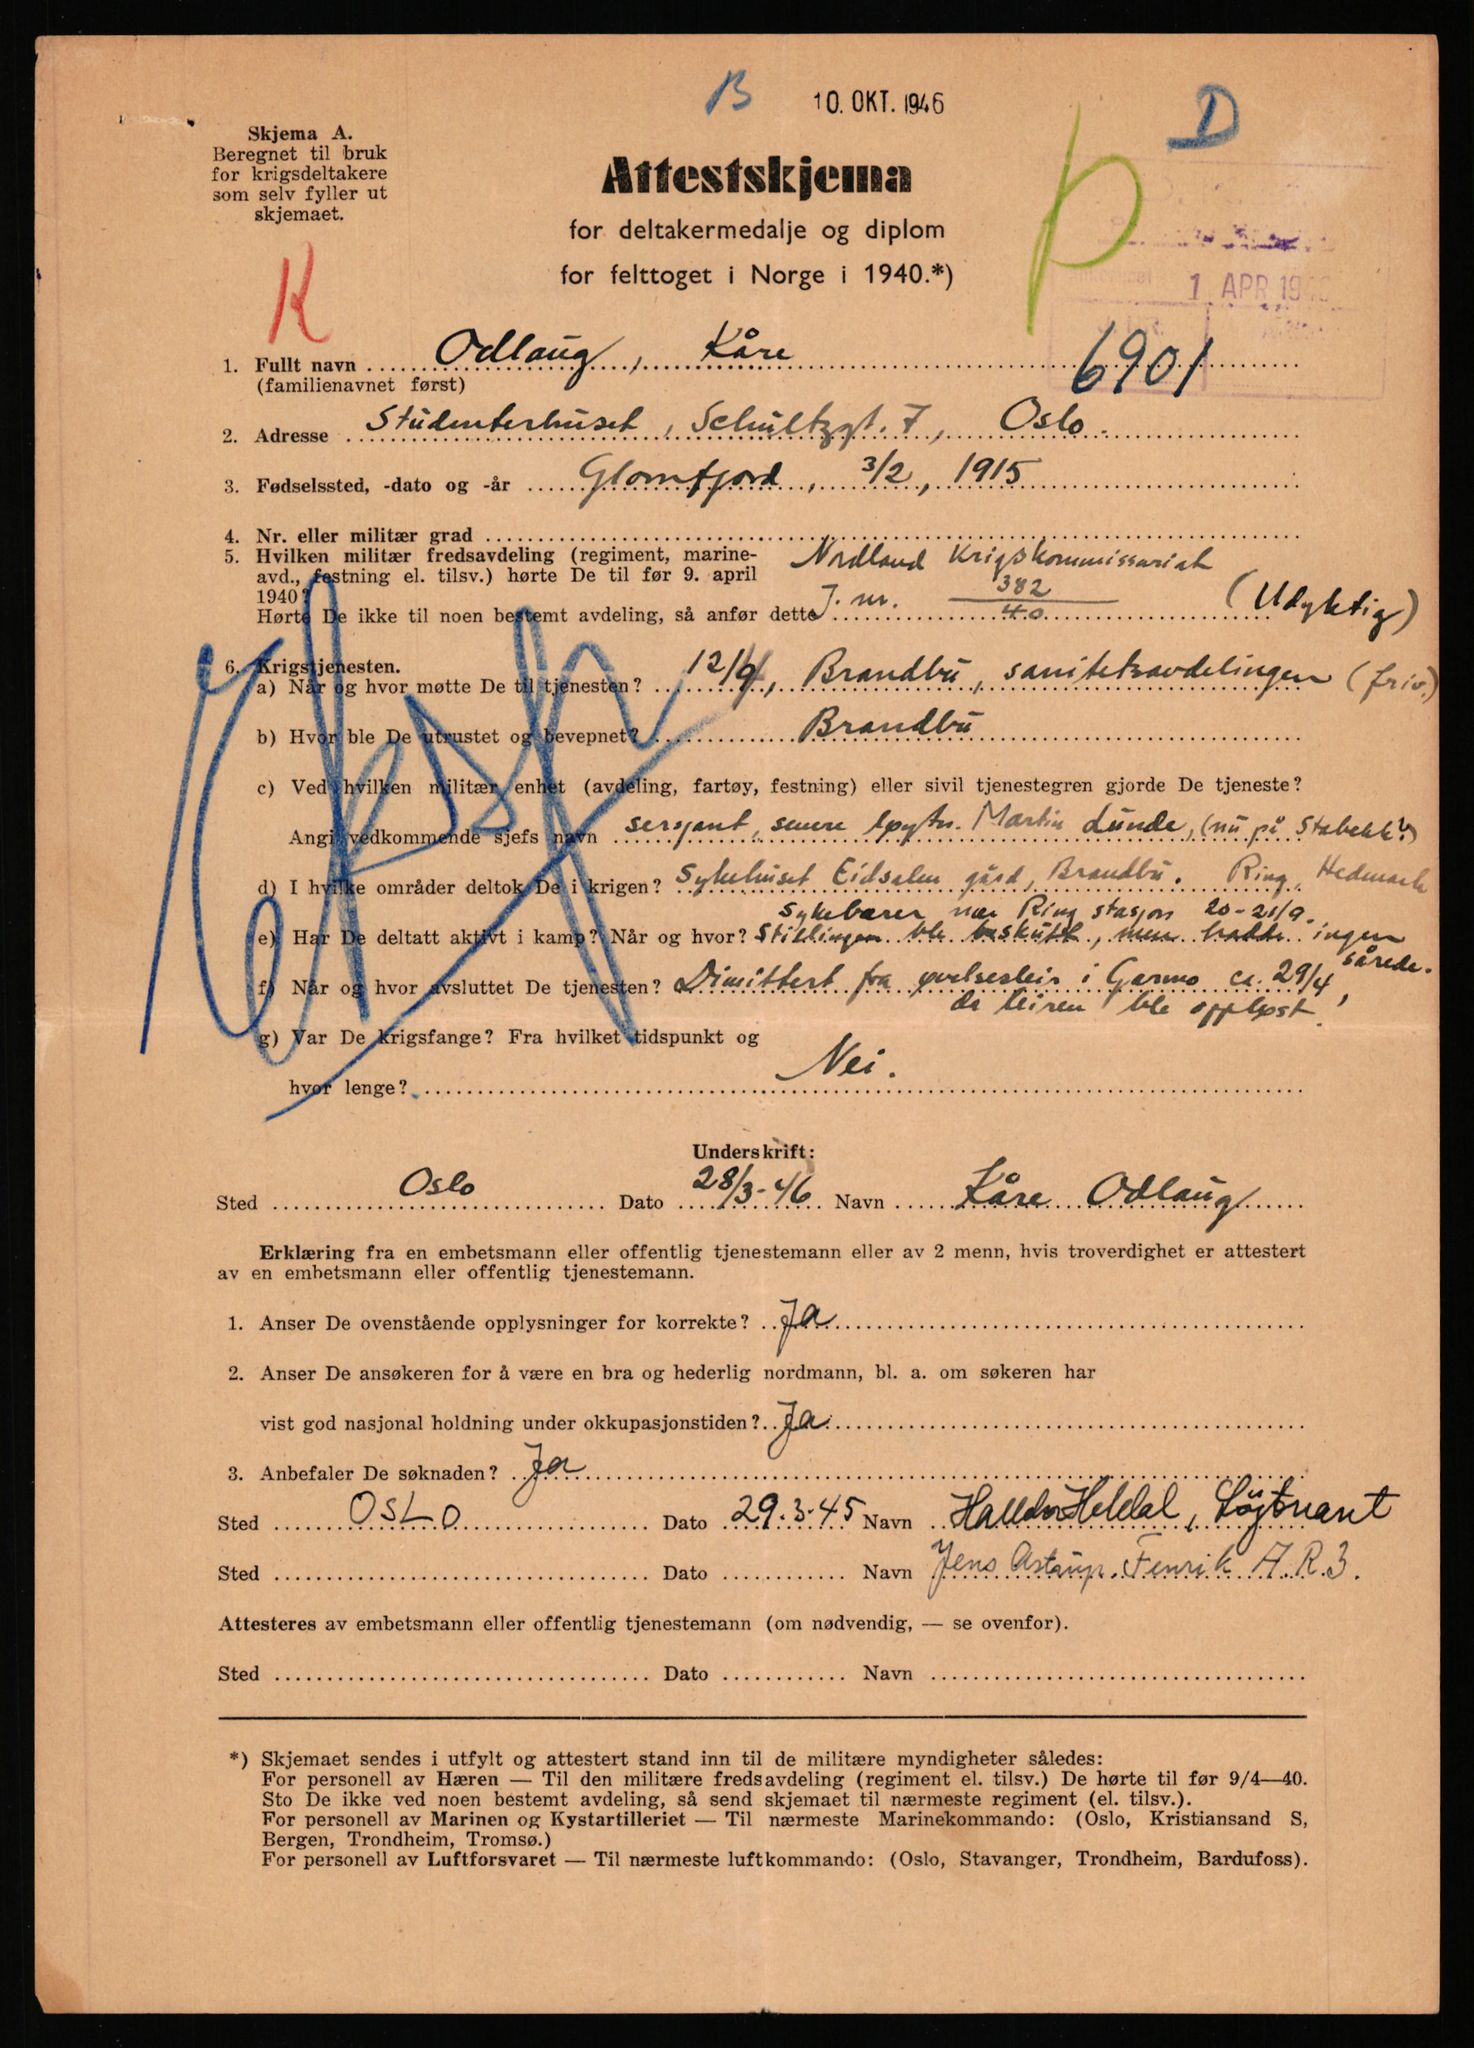 B 10. OKT. 1946 D
Skjema A.
Beregnet til bruk
for krigsdeltakere
som selv fyller ut
skjemaet.
Attestskjema
for deltakermedalje og diplom
for felttoget i Norge i 1940.*)
K
1 APR 194
1. Fullt navn Odlaug, Kåre 6901
(familienavnet først)
2. Adresse Studenterhuset, Schultzgt. 7, Oslo.
3. Fødselssted, -dato og -år Glomfjord, 3/2, 1915
4. Nr. eller militær grad
5. Hvilken militær fredsavdeling (regiment, marine-
avd., festning el. tilsv.) hørte De til før 9. april
1940? Nordland Krigskommissariat
Hørte De ikke til noen bestemt avdeling, så anfør dette J. nr. 382/40 (Udyktig)
6. Krigstjenesten.
a) Når og hvor møtte De til tjenesten? 12/4, Brandbu, sanitetsavdelingen (friv.)
b) Hvor ble De utrustet og bevepnet? Brandbu
c) Ved hvilken militær enhet (avdeling, fartøy, festning) eller sivil tjenestegren gjorde De tjeneste?
Angi vedkommende sjefs navn sersjant, senere løytn. Martin Lunde, (nu på Stabekk?)
d) I hvilke områder deltok De i krigen? Sykehuset Eidsalen gård, Brandbu. Ring, Hedmark
Sykebærer nær Ring stasjon 20-21/4.
e) Har De deltatt aktivt i kamp? Når og hvor? Stillingen ble beskutt, men hadde ingen
sårede.
f) Når og hvor avsluttet De tjenesten? Dimittert fra øvelsesleir i Garmo ca. 29/4,
da leiren ble oppløst.
g) Var De krigsfange? Fra hvilket tidspunkt og
hvor lenge? Nei.
Underskrift:
Sted Oslo Dato 28/3-46 Navn Kåre Odlaug
Erklæring fra en embetsmann eller offentlig tjenestemann eller av 2 menn, hvis troverdighet er attestert
av en embetsmann eller offentlig tjenestemann.
1. Anser De ovenstående opplysninger for korrekte? Ja
2. Anser De ansøkeren for å være en bra og hederlig nordmann, bl. a. om søkeren har
vist god nasjonal holdning under okkupasjonstiden? Ja
3. Anbefaler De søknaden? Ja
Sted OSLO Dato 29.3.45 Navn Halldor Heldal, Løjtnant
Sted Dato Navn Jens Astrup. Fenrik A.R.3.
Attesteres av embetsmann eller offentlig tjenestemann (om nødvendig, — se ovenfor).
Sted Dato Navn
*) Skjemaet sendes i utfylt og attestert stand inn til de militære myndigheter således:
For personell av Hæren — Til den militære fredsavdeling (regiment el. tilsv.) De hørte til før 9/4—40.
Sto De ikke ved noen bestemt avdeling, så send skjemaet til nærmeste regiment (el. tilsv.).
For personell av Marinen og Kystartilleriet — Til nærmeste Marinekommando: (Oslo, Kristiansand S,
Bergen, Trondheim, Tromsø.)
For personell av Luftforsvaret — Til nærmeste luftkommando: (Oslo, Stavanger, Trondheim, Bardufoss).